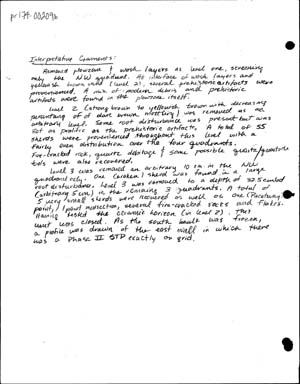 pr178.00209b
Interpretative Comments:
Removed plowzone & wash layers as level one, screening
only the NW quadrant. At interface of wash layers and
yellowish brown sand (level 2), several prehistoric artifacts were
provenienced. A mix of modern debris and prehistoric
artifacts were found in the plowzone itself.
Level 2 (strong brown to yellowish brown with decreasing
percentage of dark brown mottling) was removed as an
arbitrary level. Some root disturbance was present but was
not as prolific as the prehistoric artifacts. A total of 55
sherds were provenienced throughout this level with a
fairly even distribution over the four quadrants.
Fire-cracked rock, quartz debitage & some possible quartz/quartzite
tools were also recovered.
Level 3 was removed an arbitrary 10 cm in the NW
quadrant only. One (broken) sherd was found in a large
root disturbance. Level 3 was removed to a depth of 32.5 cmbd
(arbitrary 5 cm) in the remaining 3 quadrants. A total of
5 very small sherds were recovered as well as one
point/point midsection, several fire-cracked rocks and flakes.
Having tested the ceramic horizon (in level 2), the
unit was closed. As the south baulk was frozen,
a profile was drawn of the east wall in which there
was a Phase II STP exactly on grid.